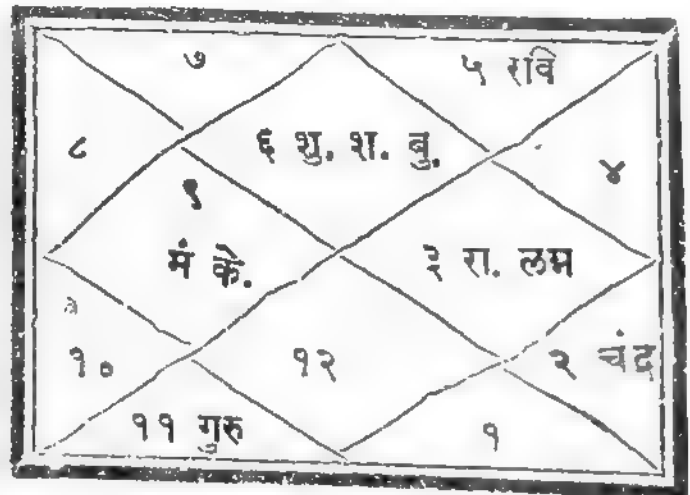 ७
५ रवि
८
६ शु. श. बु.
४
९
मं के.
३ रा. लग्न
१०
१२
२ चंद्र
११ गुरु
१